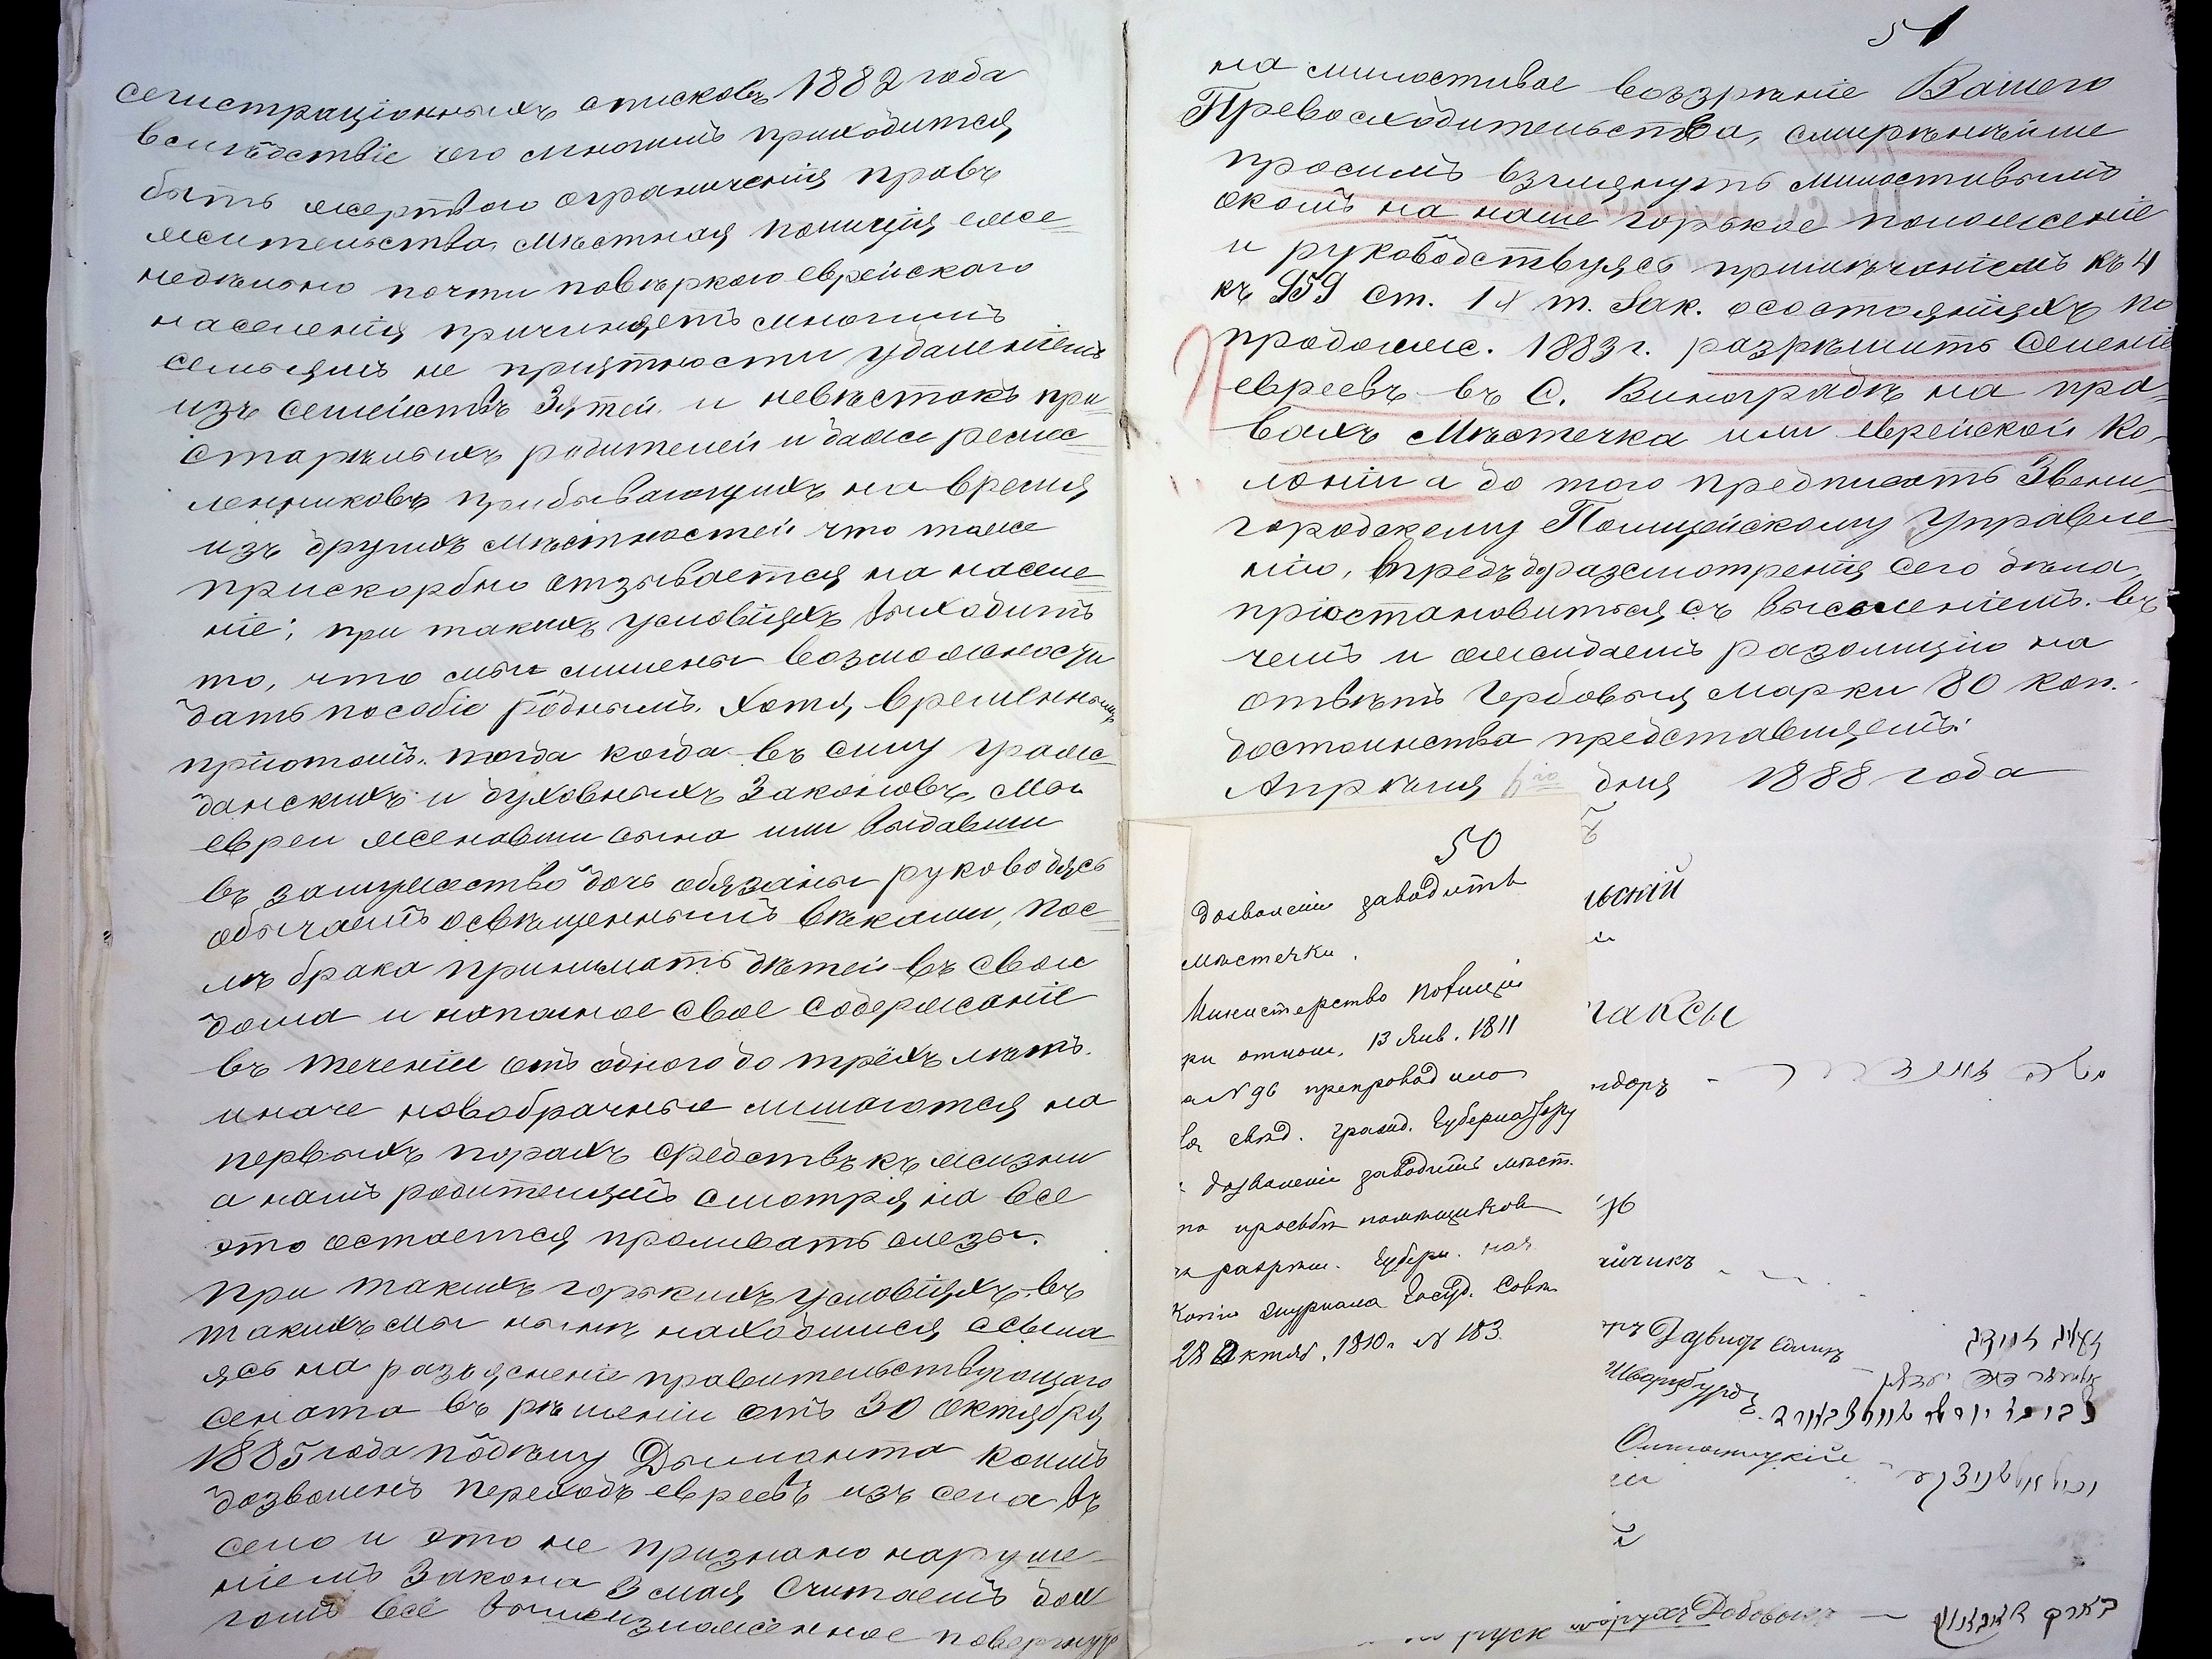 сегистраціонныхъ списковъ 1882 года
вслѣдствіе чего многимъ приходится
быть жертвою ограниченія правъ
жительства, Мѣстная полиція еже=
недѣльно почти повѣркою еврейскаго
населенія причиняетъ многимъ
семьямъ не пріятности удаленіемъ
изъ семействъ Зятей и невѣстокъ при
старѣлыхъ родителей и даже ремес=
ленниковъ прибывающихъ на время
изъ другихъ мѣстностей что тоже
прискорбно отзывается на населе=
ніе; при такихъ условіяхъ выходитъ
то, что мы лишены возможности
дать пособіе роднымъ. Хотя, временнымъ
пріютомъ. тогда когда въ силу граж=
данскихъ и духовныхъ Законовъ, Мы
евреи женивши сына или выдавши
въ замужество дочь обязаны руководясь
обычаемъ освѣщеннымъ вѣками, пос=
лѣ брака принимать дѣтей въ свои
дома и на полное свое содержаніе
въ теченіи отъ одного до трёхъ лѣтъ.
иначе новобрачные лишаются на
первыхъ порахъ средствъ къ жизни
а намъ родителямъ смотря на все
это остается проливать слезы.
При такихъ горькихъ условіяхъ въ
такихъ мы нынѣ находимся, ссыла
ясь на разъясненіе правительствующаго
сената въ рѣшеніи отъ 30 октября
1885 года по дѣлу Дыманта коимъ
дозволенъ переходъ евреевъ изъ села въ
село и это не признано наруше=
ніемъ Закона 3 мая Считаемъ дол
гомъ всё вышеизложенное повергнуть
51
на милостивое воззрѣніе Вашего
Превосходительства, смирѣннѣйше
просимъ взглянуть милостивымъ
окомъ на наше горькое положеніе
и руководствуясь примѣчаніемъ къ 4
къ 959 ст. IX т. Зак. о состояніяхъ по
продолж. 1883 г. разрѣшить Селеніе
евреевъ въ С. Виноградѣ на пра=
вахъ Мѣстечка или еврейской Ко=
лоніи а до того предписать Звени=
городскому Полицейскому Управле=
нію, впредъ до разсмотренія сего дѣла
пріостановиться съ выселеніемъ. въ
чемъ и ожидаемъ резолюцію на
отвѣтъ Гербовыя марки 80 коп.
достоинства представляемъ:
Апрѣля дня 1888 года
50
дозволеніи заводить
мѣстечки.
Министерство Полиціи
при отнош. 13 Янв. 1811
за № 96 препроводило
свѣд. гражд. Губернатору
дозволеніи заводить мѣст.
по просьбѣ помѣщиковъ
разрѣш. Губерн. нач
Копію журнала Госуд. Совѣ
28 Октяб. 1810 г. № 183.
льскій
таксы
ндоръ
йчикъ
Давидъ
Шварцбурдъ
руск Борухъ Добовой